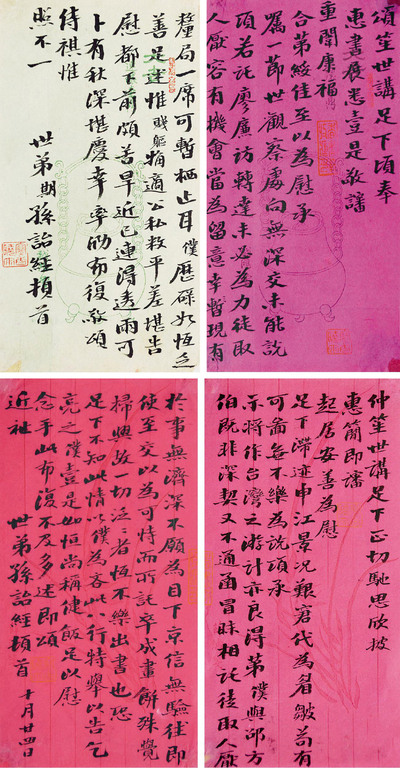 頌笙世講足下頃奉
惠書展悉壹是敬諗
重闈康福
合第綏佳至以為慰承
屬一節世觀察處向無深交未能説
項若託廖廉訪轉達未必為力徒取
人厭容有機會當為留意幸暫現有
釐局一席可暫栖止耳僕歷碌如恆乏
善足述惟賤軀粗適公私敉平差堪告
慰都下前頗苦旱近已連得透雨可
卜有秋深堪慶幸專泐布復敬頌
侍祺惟
照不一
世弟期孫詒經頓首
仲笙世講足下正切馳思欣披
惠簡即諗
起居安善為慰
足下滯迹申江景況艱窘代為眉皺苟有
可啚無不樂為說項承
示將作台灣之游計亦良得第僕與邵方
伯既非深契又不通函冒昧相託徒取人厭
於事無濟深不願為目下京信無驗往即
使至交以為可恃而所託卒成畫餅殊覺
掃興故一切泛者恆不樂出書也恐
足下不知此情以僕為吝此八行特舉以告乞
亮之僕壹是如恒尚稱健飯足以慰
念手此布復不及多述即頌
近祉 世弟孫詒經頓首 十月廿四